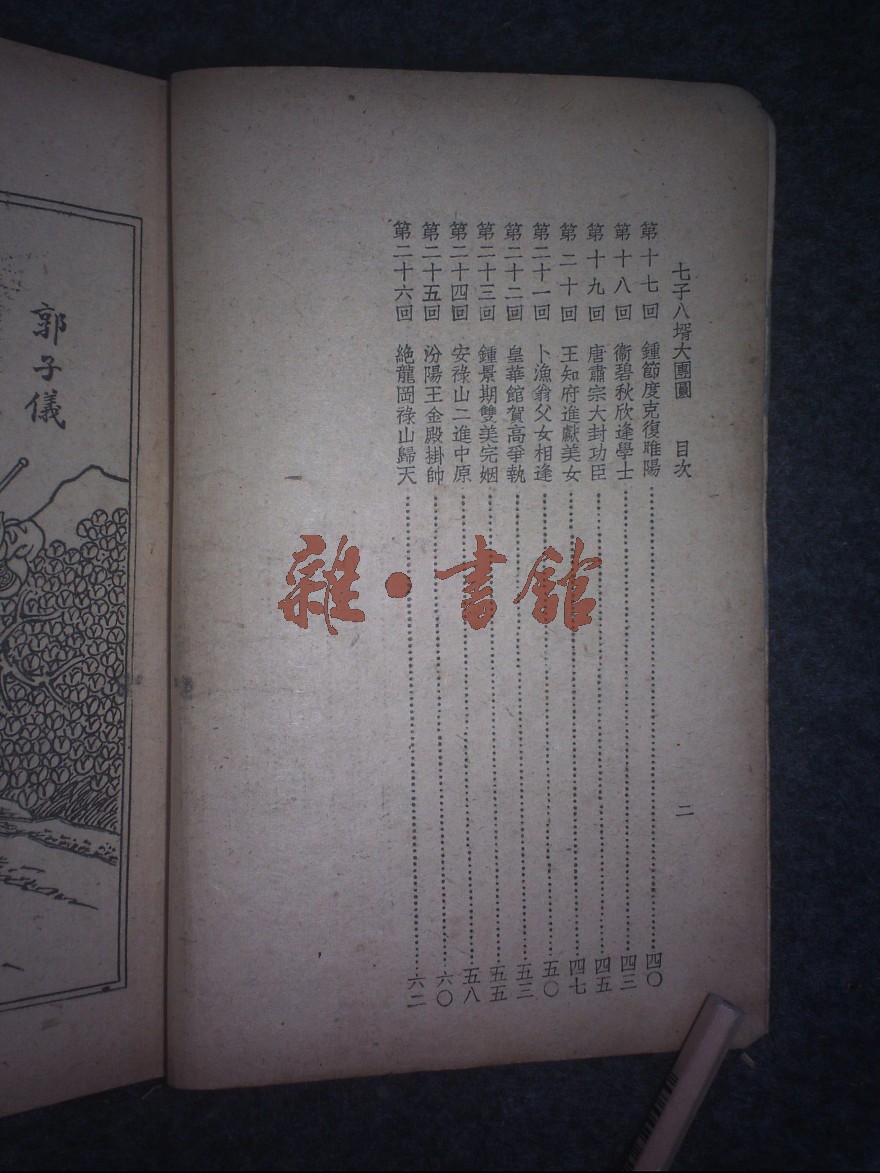 七子八壻大團圓　目次
二
第十七回　鍾節度克復睢陽……四〇
第十八回　衞碧秋欣逢學士……四三
第十九回　唐肅宗大封功臣……四五
第二十回　王知府進獻美女……四七
第二十一回　卜漁翁父女相逢……五〇
第二十二回　皇華館賀高爭執……五三
第二十三回　鍾景期雙美完姻……五五
第二十四回　安祿山二進中原……五八
第二十五回　汾陽王金殿掛帥……六〇
第二十六回　絕龍岡祿山歸天……六二
郭子儀
雜·書館